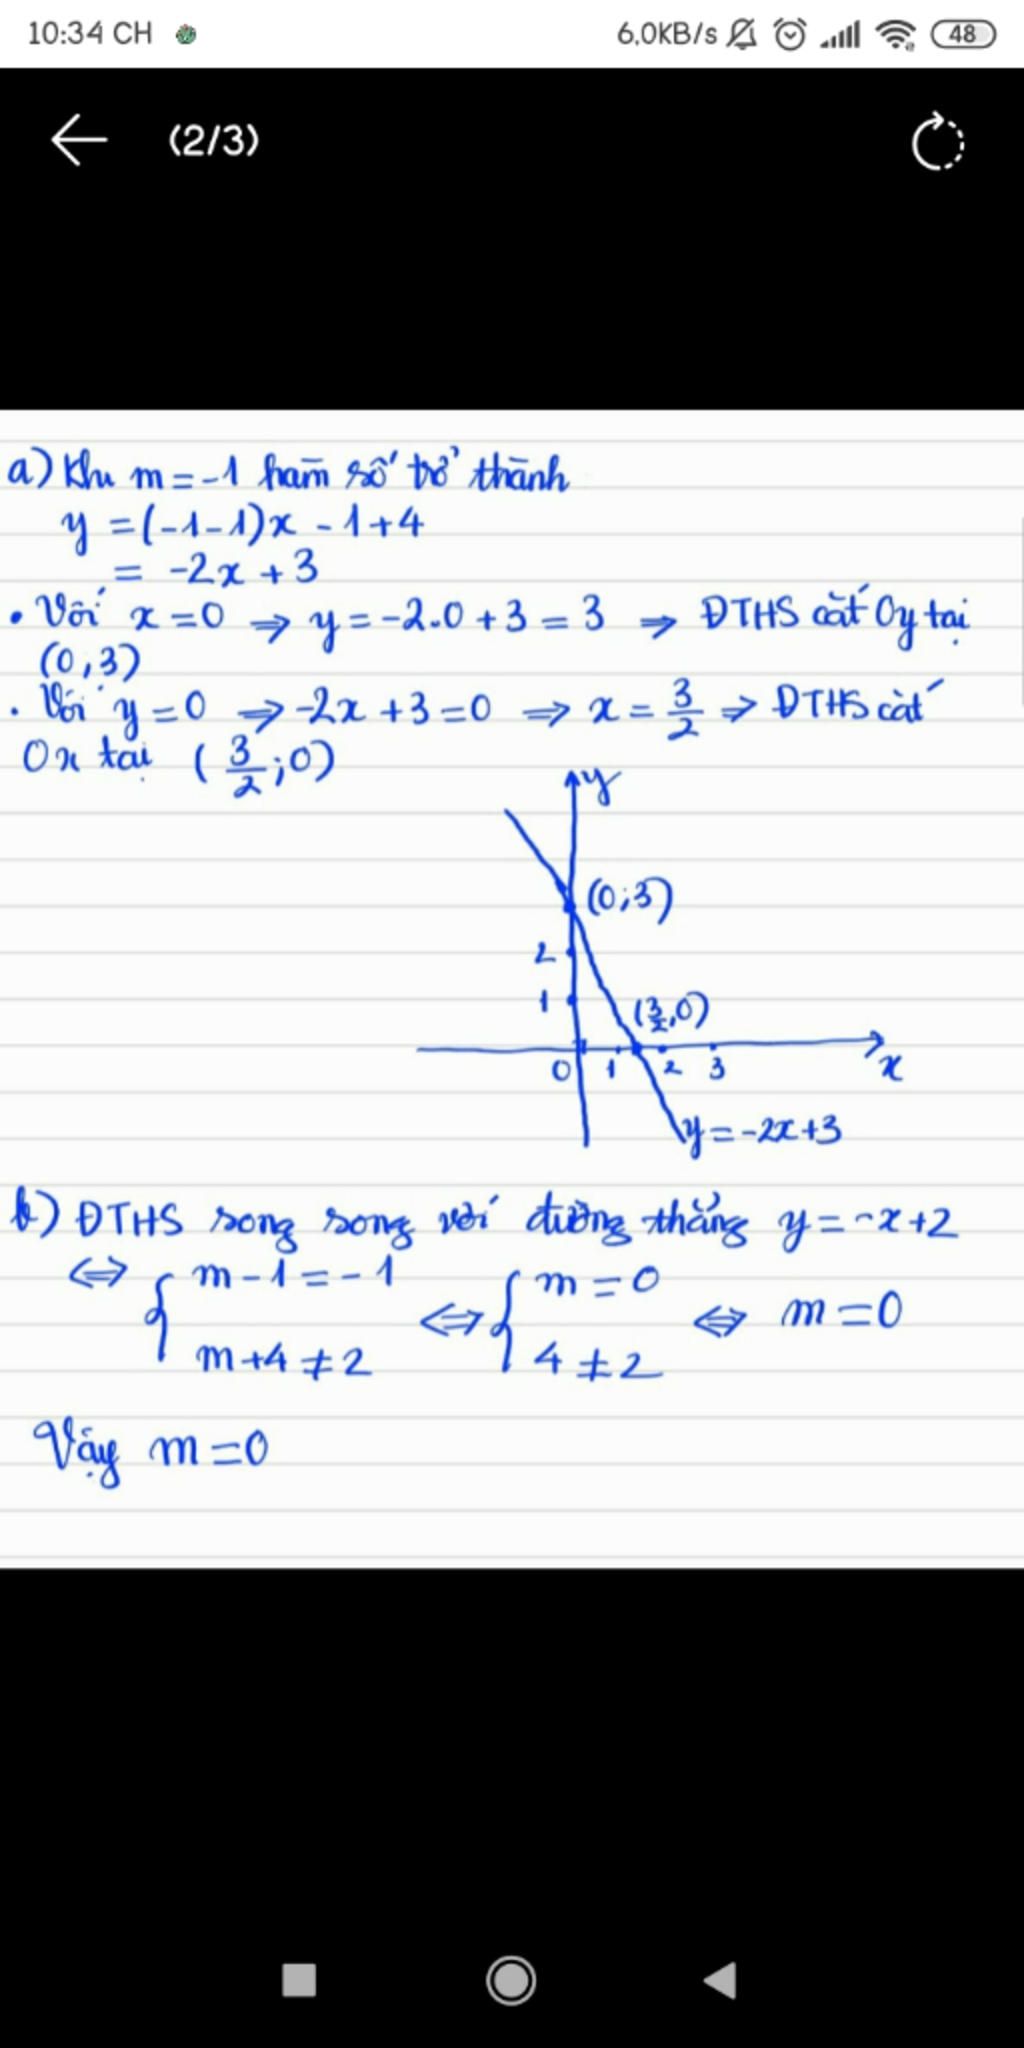 10:34 CH 6,0KB/s 48
(2/3)
a) Khi m = -1 hàm số trở thành
y = (-1-1)x - 1 + 4
= -2x + 3
• Với x = 0 ⇒ y = -2.0 + 3 = 3 ⇒ ĐTHS cắt Oy tại
(0,3)
• Với y = 0 ⇒ -2x + 3 = 0 ⇒ x = 3/2 ⇒ ĐTHS cắt
Ox tại (3/2;0)
y
(0;3)
2
1
(3/2,0)
0 1 2 3 x
y = -2x+3
b) ĐTHS song song với đường thẳng y = -x+2
⇔ { m - 1 = -1 ⇔ { m = 0 ⇔ m = 0
m+4 ≠ 2 4 ≠ 2
Vậy m = 0